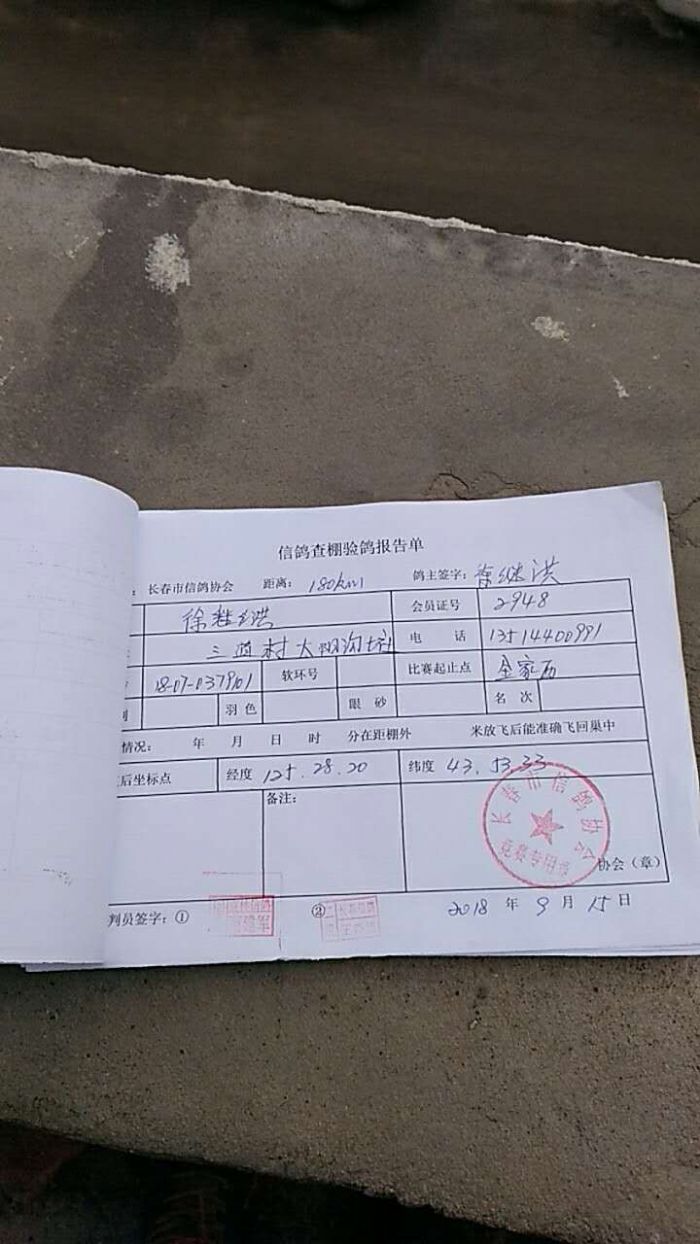 信鸽查棚验鸽报告单
: 长春市信鸽协会 距离: 180km 鸽主签字: 徐继洪
徐继洪 会员证号 2948
三道村大 电 话 13514400991
18-07-037901 软环号 比赛起止点
羽色 眼砂 名次
情况: 年 月 日 时 分在距棚外 米放飞后能准确飞回巢中
后坐标点 经度 125.28.20 纬度 43.53.33
备注:
长春市信鸽协会
竞赛专用章
协会(章)
判员签字: ① ②
2018 年 9 月 15 日